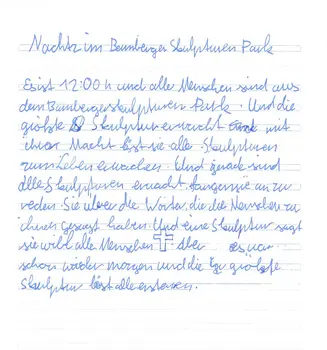 Nachtz im Bamberger Skulpturen Park
Es ist 12:00 h und alle Menschen sind aus
dem Bambergerskulpturen Park. Und die
größte Skulptur erwacht mit
ihrer Macht lässt sie alle Skulpturen
zum Leben erwachen. Und gerade sind
alle Skulpturen erwacht fangen sie an zu
reden Sie über die Worte, die die Menschen zu
ihnen gesagt haben. Und eine Skulptur sagt
sie will alle Menschen ✝ aber es war
schon wieder morgen und die größte
Skulptur lässt alle erstarren.